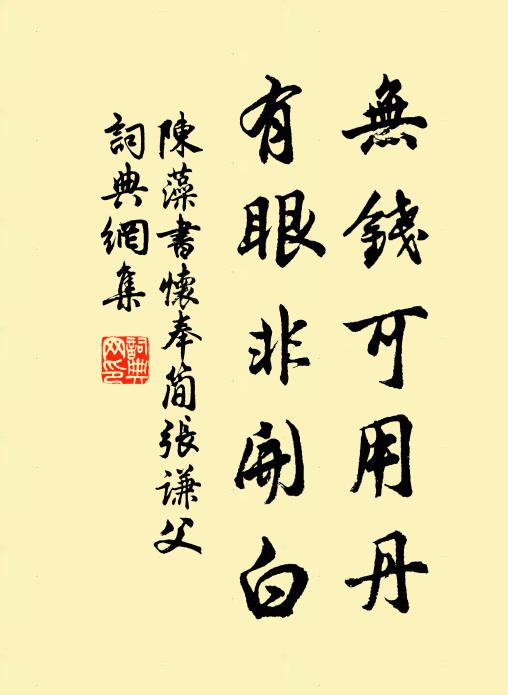 無錢可用丹
有眼非開白
陳藻書懷奉簡張謙父
詞典網集
詞典網印